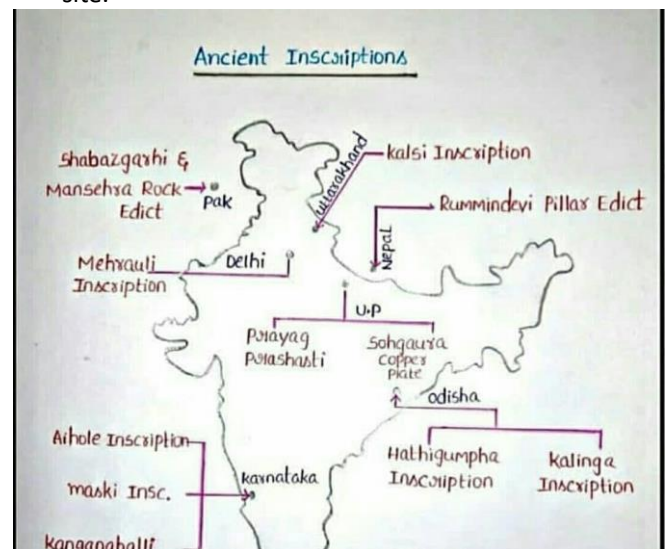 site.
Ancient Inscriptions
Shabazgarhi &
Mansehra Rock
Edict
Pak
Uttarakhand
Kalsi Inscription
Rummindevi Pillar Edict
Nepal
Mehrauli
Inscription
Delhi
U.P
Prayag
Prashasti
Sohgaura
Copper
Plate
Odisha
Hathigumpha
Inscription
Kalinga
Inscription
Aihole Inscription
Maski Insc.
Karnataka
Kanganahalli